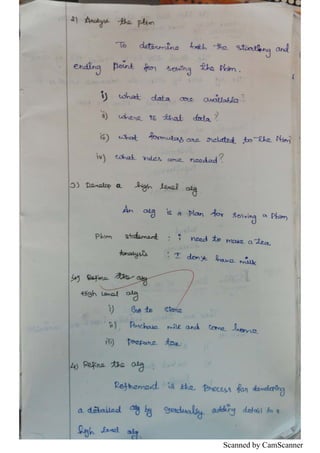 2) Analyse the pbm
To determine both the starting and
ending point for solving the Pbm.
i) what data are available?
ii) where is that data?
iii) what formulas are related to the Pbm?
iv) what rules are needed?
3) Develop a high level alg
An alg is a plan for solving a Pbm
Pbm statement : I need to make a tea
Analysis : I don't have milk
4) Refine the alg
High level alg
i) Go to store
ii) Purchase milk and come home
iii) prepare tea
4) Refine the alg :
Refinement is the process for developing
a detailed alg by gradually adding detail to a
high level alg.
Scanned by CamScanner